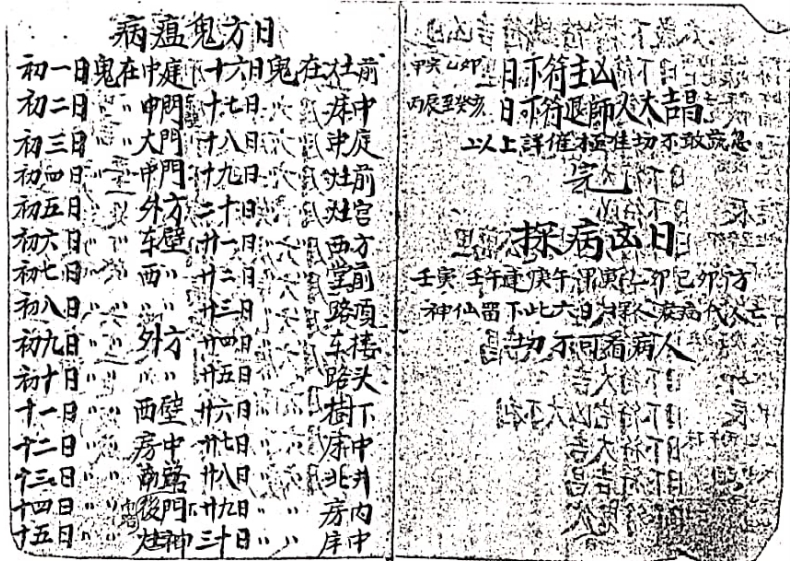 病瘟鬼方日
初一日鬼在中庭 十六日鬼在灶前
初二日〃〃中門 十七日〃〃床中
初三日〃〃大門 十八日〃〃中庭
初四日〃〃中門 十九日〃〃灶前
初五日〃〃外方 二十日〃〃灶宫
初六日〃〃东壁 廿一日〃〃西方
初七日〃〃西〃 廿二日〃〃堂前
初八日〃〃〃〃 廿三日〃〃路頂
初九日〃〃外方 廿四日〃〃车楼
初十日〃〃〃〃 廿五日〃〃路头
十一日〃〃西壁 廿六日〃〃樹下
十二日〃〃房中 廿七日〃〃床中
十三日〃〃南路 廿八日〃〃北井
十四日〃〃後門 廿九日〃〃房内
十五日〃〃灶神 三十日〃〃床中
甲寅乙卯日下符主凶
丙辰至癸亥日下符退師人大吉昌
以上詳催極准切不敢疏忽
完
探病凶日
壬寅 壬午連庚午 甲寅乙卯己卯方
神仙留下此六日 探人疾病代人亡
切不可看病人